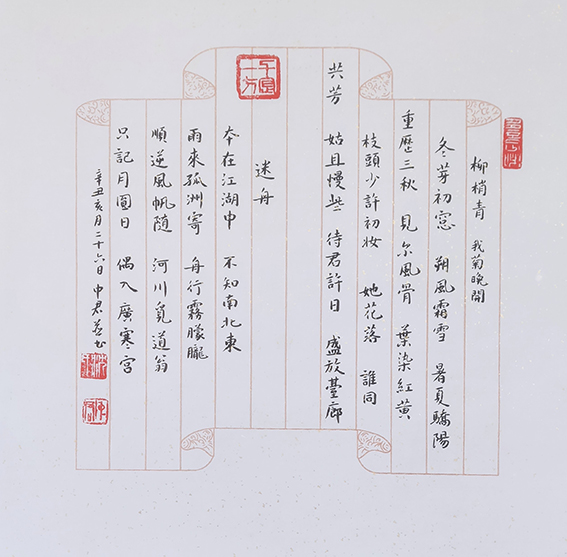 柳梢青 我菊晚開
冬芽初窓 朔風霜雪 暑夏驕陽
重歷三秋 見尔風骨 葉染紅黃
枝頭少許初妝 她花落 誰同
共芳 姑且慢些 待君許日 盛放臺廊
迷舟
本在江湖中 不知南北東
雨來孤洲寄 舟行霧朦朧
順逆風帆隨 河川覓道翁
只記月圓日 偶入廣寒宮
辛丑亥月二十六日 申君並书